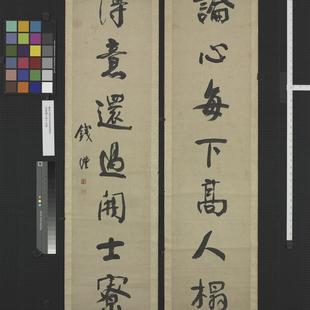 論心每下高人榻
得意還過開士寮
錢灃